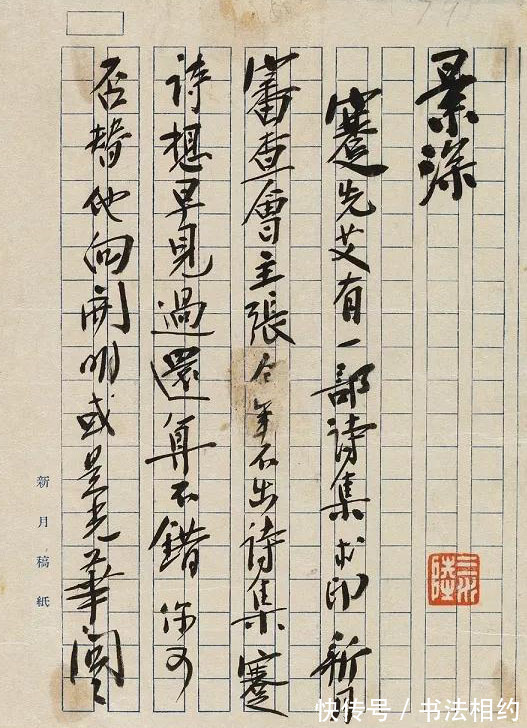 景深
蹇先艾有一部詩集求印新月
審查會主張今年不出詩集蹇
詩想早見過還算不錯你可
否替他向開明或是光華閱
新月稿紙
快传号/书法相约